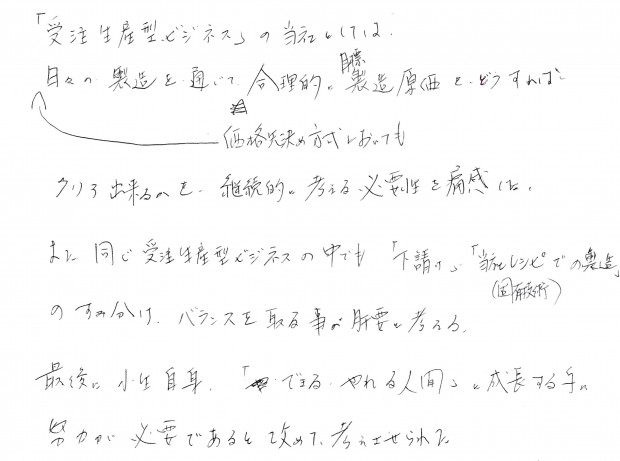 「受注生産型ビジネス」の当社としては、
目標
日々の製造を通いて 合理的に製造原価を、どうすれば
価格先決め方式においても
クリア出来るかを、継続的に考える必要性を痛感した。
また同じ受注生産型ビジネスの中でも「下請け」「当社レシピでの製造」
(固有技術)
のすみ分け、バランスを取る事が肝要と考える。
最後に小生自身、「できる・やれる人間」に成長する手に
努力が必要であると改めて、考えさせられた